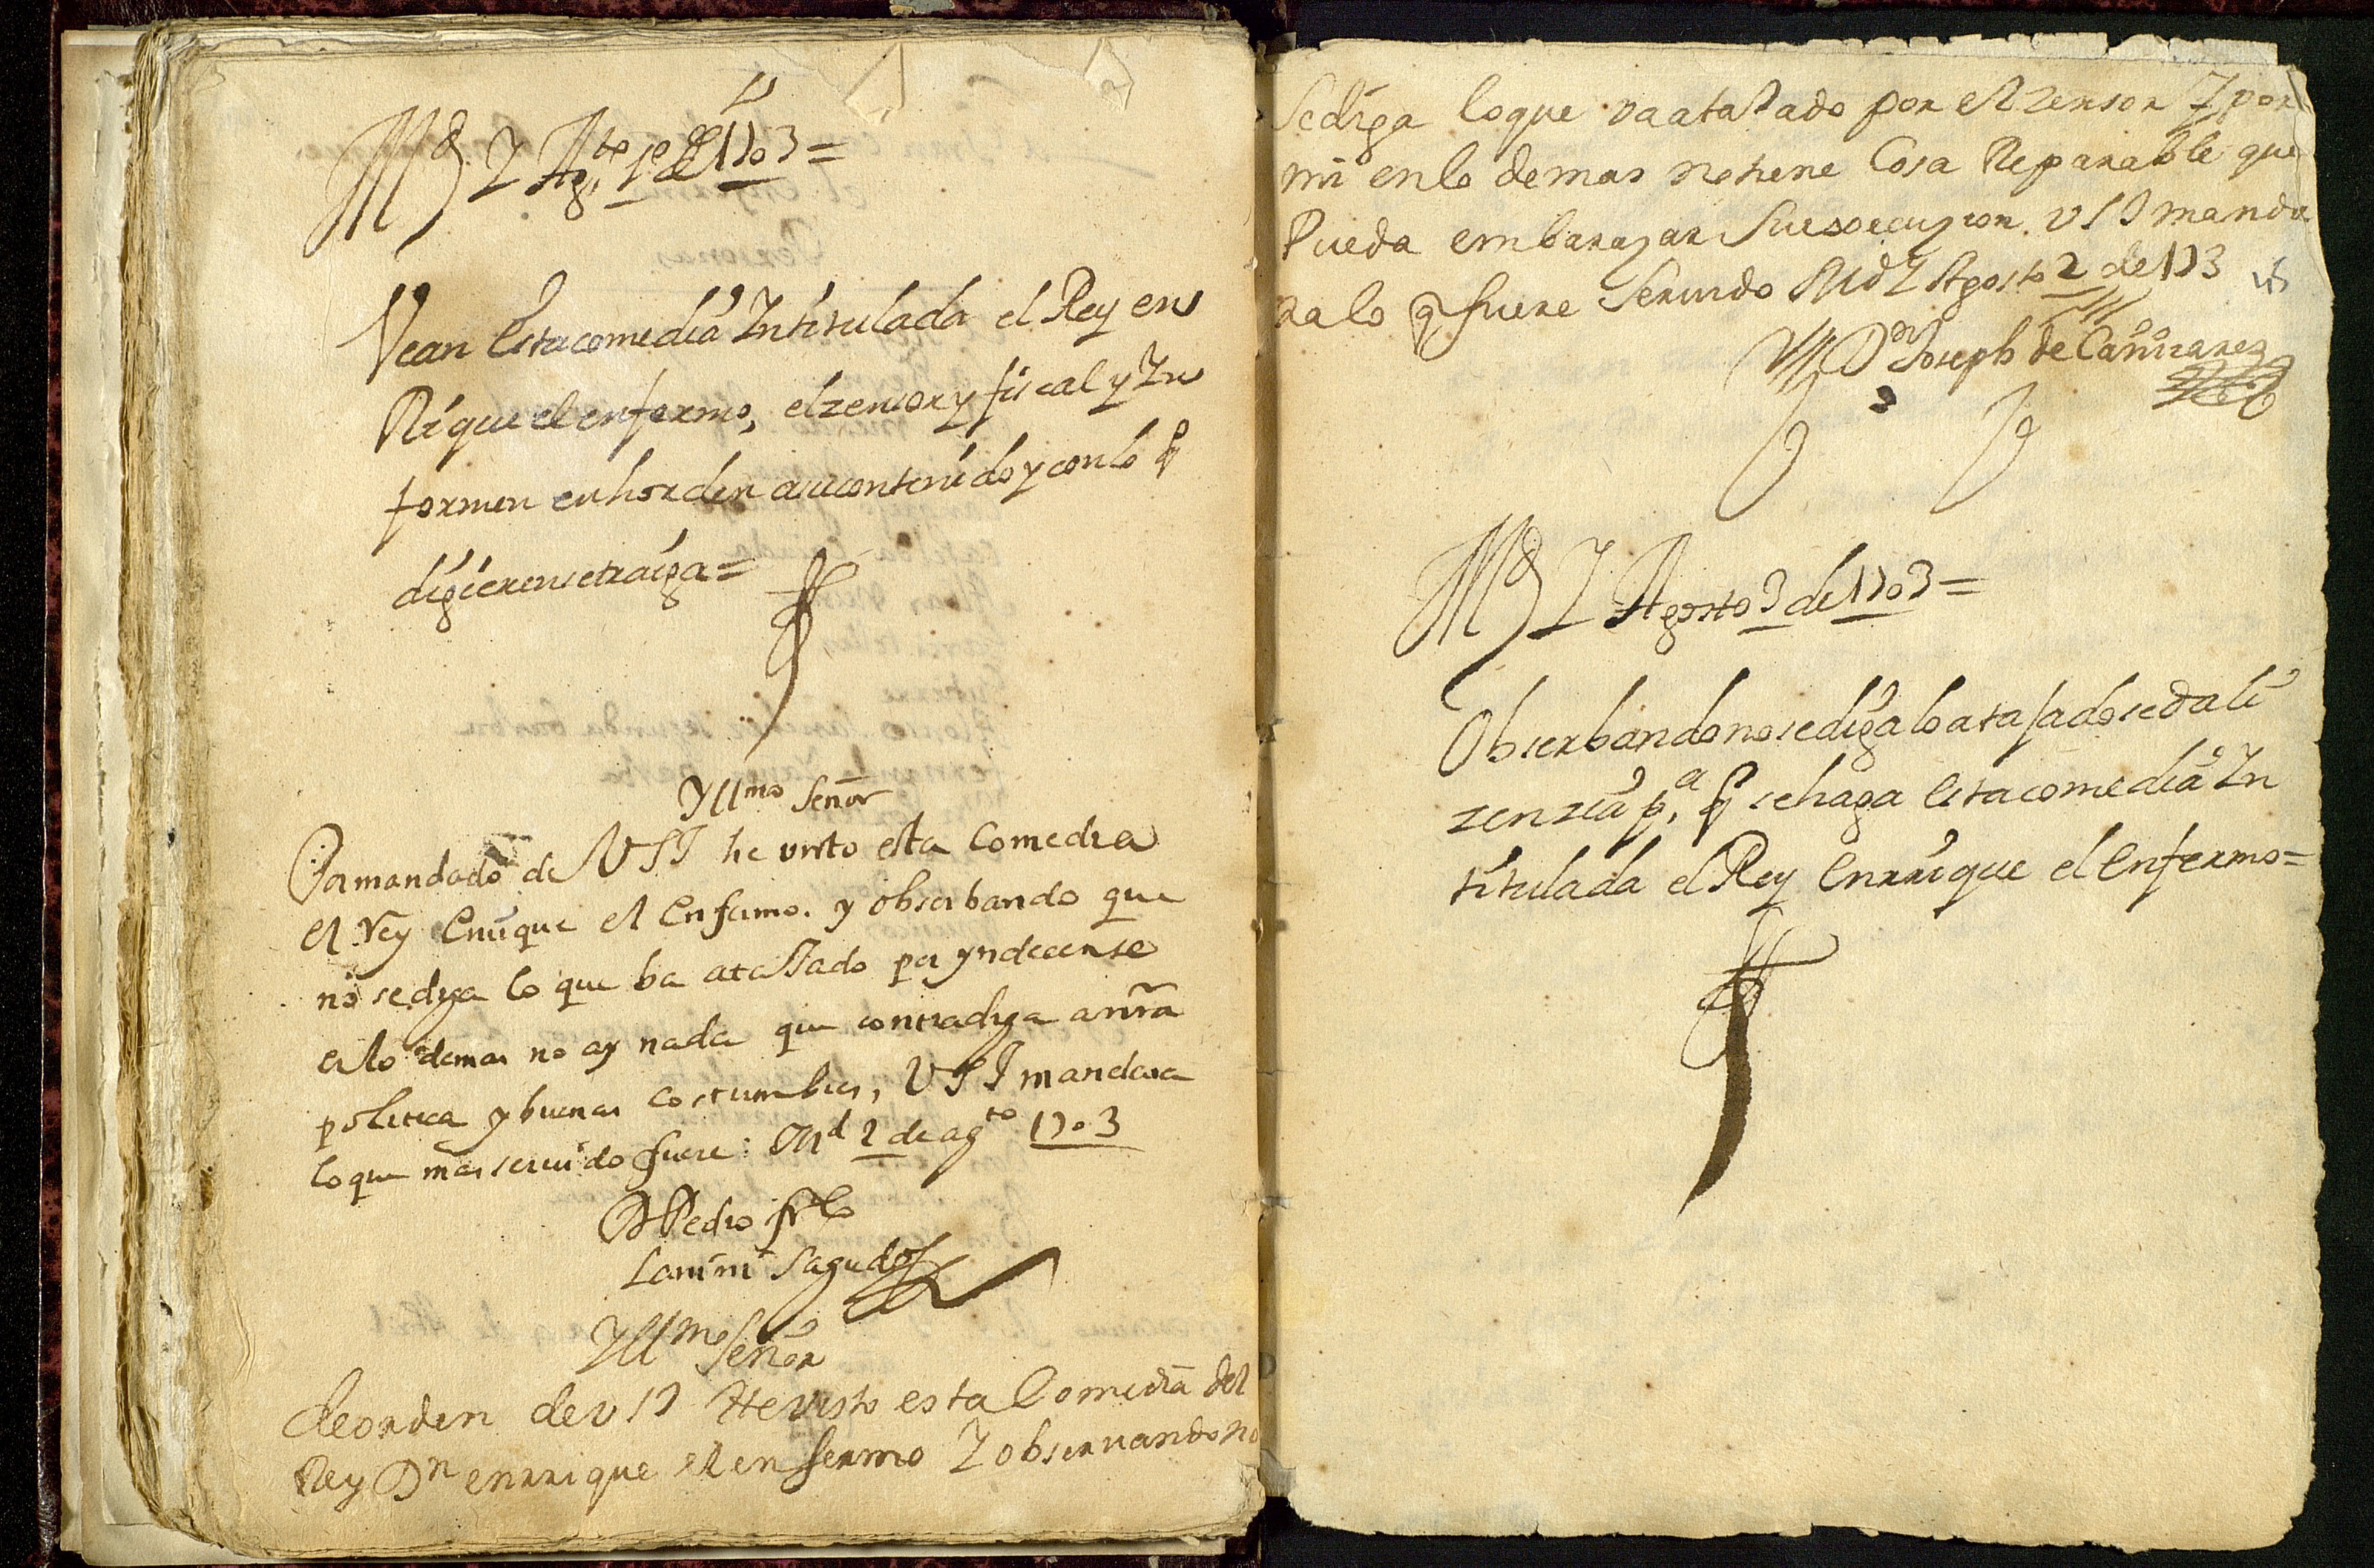 Md. Y Ag.to 1º de 1703 =
Vean esta comedia Intitulada el Rey en
Rique el enfermo, el zensor y fiscal y In
formen en horden a su contenido y con lo q
digieren se traiga =
Yllmo Señor
Por mandado de VSI he visto esta Comedia
el Rey Enrique el Enfermo. y obserbando que
no se diga lo que ba atassado por yndecense
en lo demas no ay nada que contradiga a nra
politica y buenas costumbres, VSI mandara
lo que mas seruido fuere: Md 2 de agto 1703
D Pedro frco
Lanini Sagredo
Yllmo Señor
de orden de v SI He visto esta Comedia del
Rey Dn enrrique el enfermo Y observando no
se diga lo que va atajado por el zensor Y por
mi en lo demas no tiene Cosa Reparable que
Pueda embarazar su execuzion. V S I manda
ra lo q fuere Seruido Md Y Agosto 2 de 1703
Don Joseph de Cañizares
Md Y Agosto 3 de 1703 =
Obserbando no se diga lo atajado se da li
zenzia p.a q se haga esta comedia In
titulada el Rey Enrrique el Enfermo =